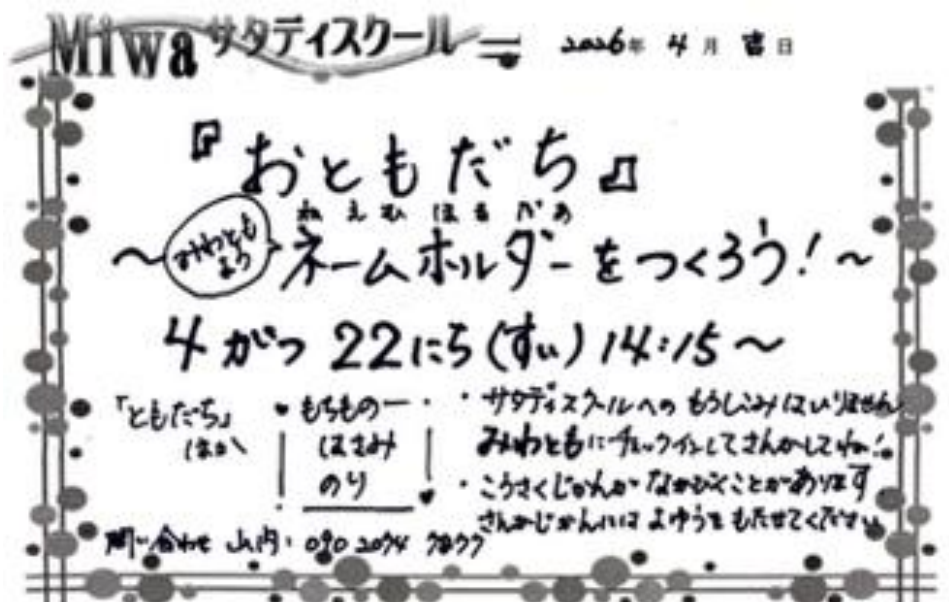 Miwa サタディスクール 2026年 4月 吉日
『おともだち』
ねえむ ほるだあ
〜みわともよう ネームホルダーをつくろう!〜
4がつ 22にち(すい) 14:15〜
「ともだち」ほか
もちもの
はさみ
のり
・サタディスクールへの もうしこみはいりません
みわともにチェックインしてさんかしてね!
・こうさくじかんが ながびくことがあります
さんかじかんには よゆうをもたせてください
問い合わせ 山内: 090 2074